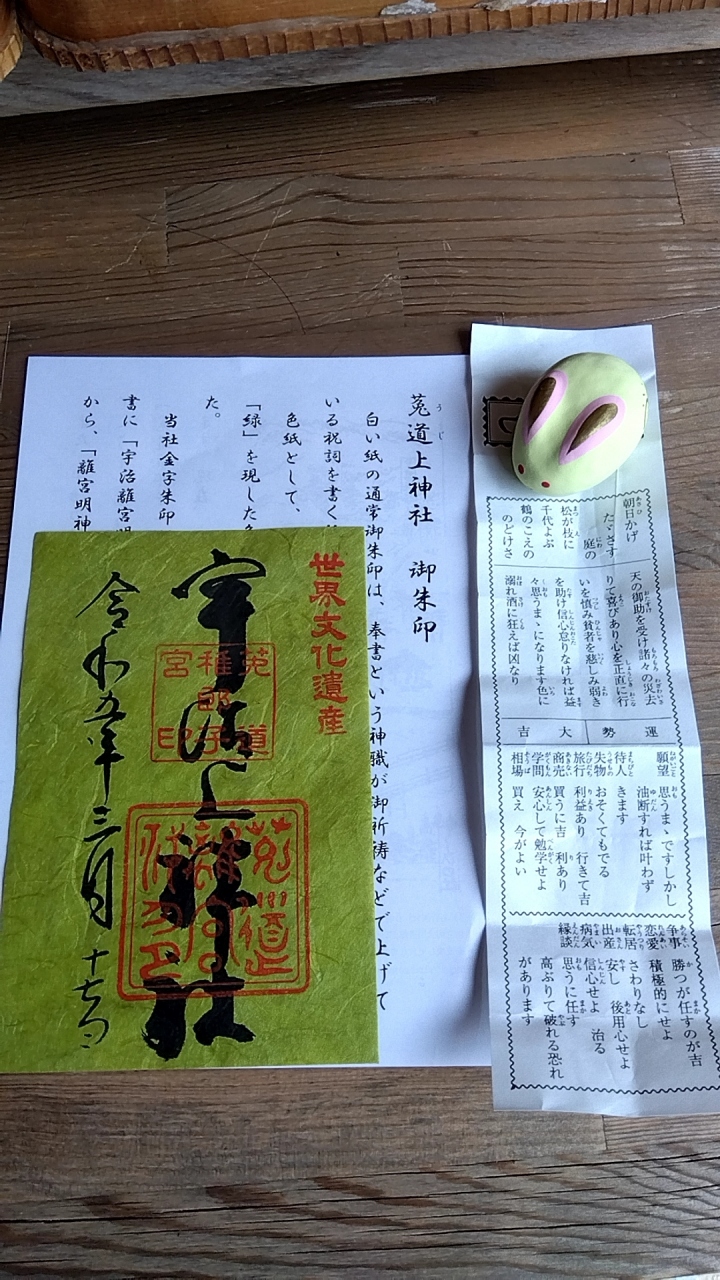 菟道上神社 御朱印
うじ
白い紙の通常御朱印は、奉書という神職が御祈祷などで上げて
いる祝詞を書く
色紙として、
「緑」を現した
た。
当社金字朱印
書に「宇治離宮明
から、「離宮明神
世界文化遺産
宇治上神社
令和五年三月十七日
菟道稚郎子宮印
朝日かげ
たゞさす
庭の
松が枝に
千代よぶ
鶴のこえの
のどけさ
天の御助を受け諸々の災去
りて喜びあり心を正直に行
いを慎み貧者を慈しみ弱き
を助け信心怠りなければ益
々思うまゝになります色に
溺れ酒に狂えば凶なり
運勢 大吉
願望 思うまゝですしかし
油断すれば叶わず
待人 きます
失物 おそくてもでる
旅行 利益あり 行きて吉
商売 買うに吉 利あり
学問 安心して勉学せよ
相場 買え 今がよい
争事 勝つが任すのが吉
恋愛 積極的にせよ
転居 さわりなし
出産 安し 後用心せよ
病気 信心せよ 治る
縁談 思うに任す
高ぶりて破れる恐れ
があります